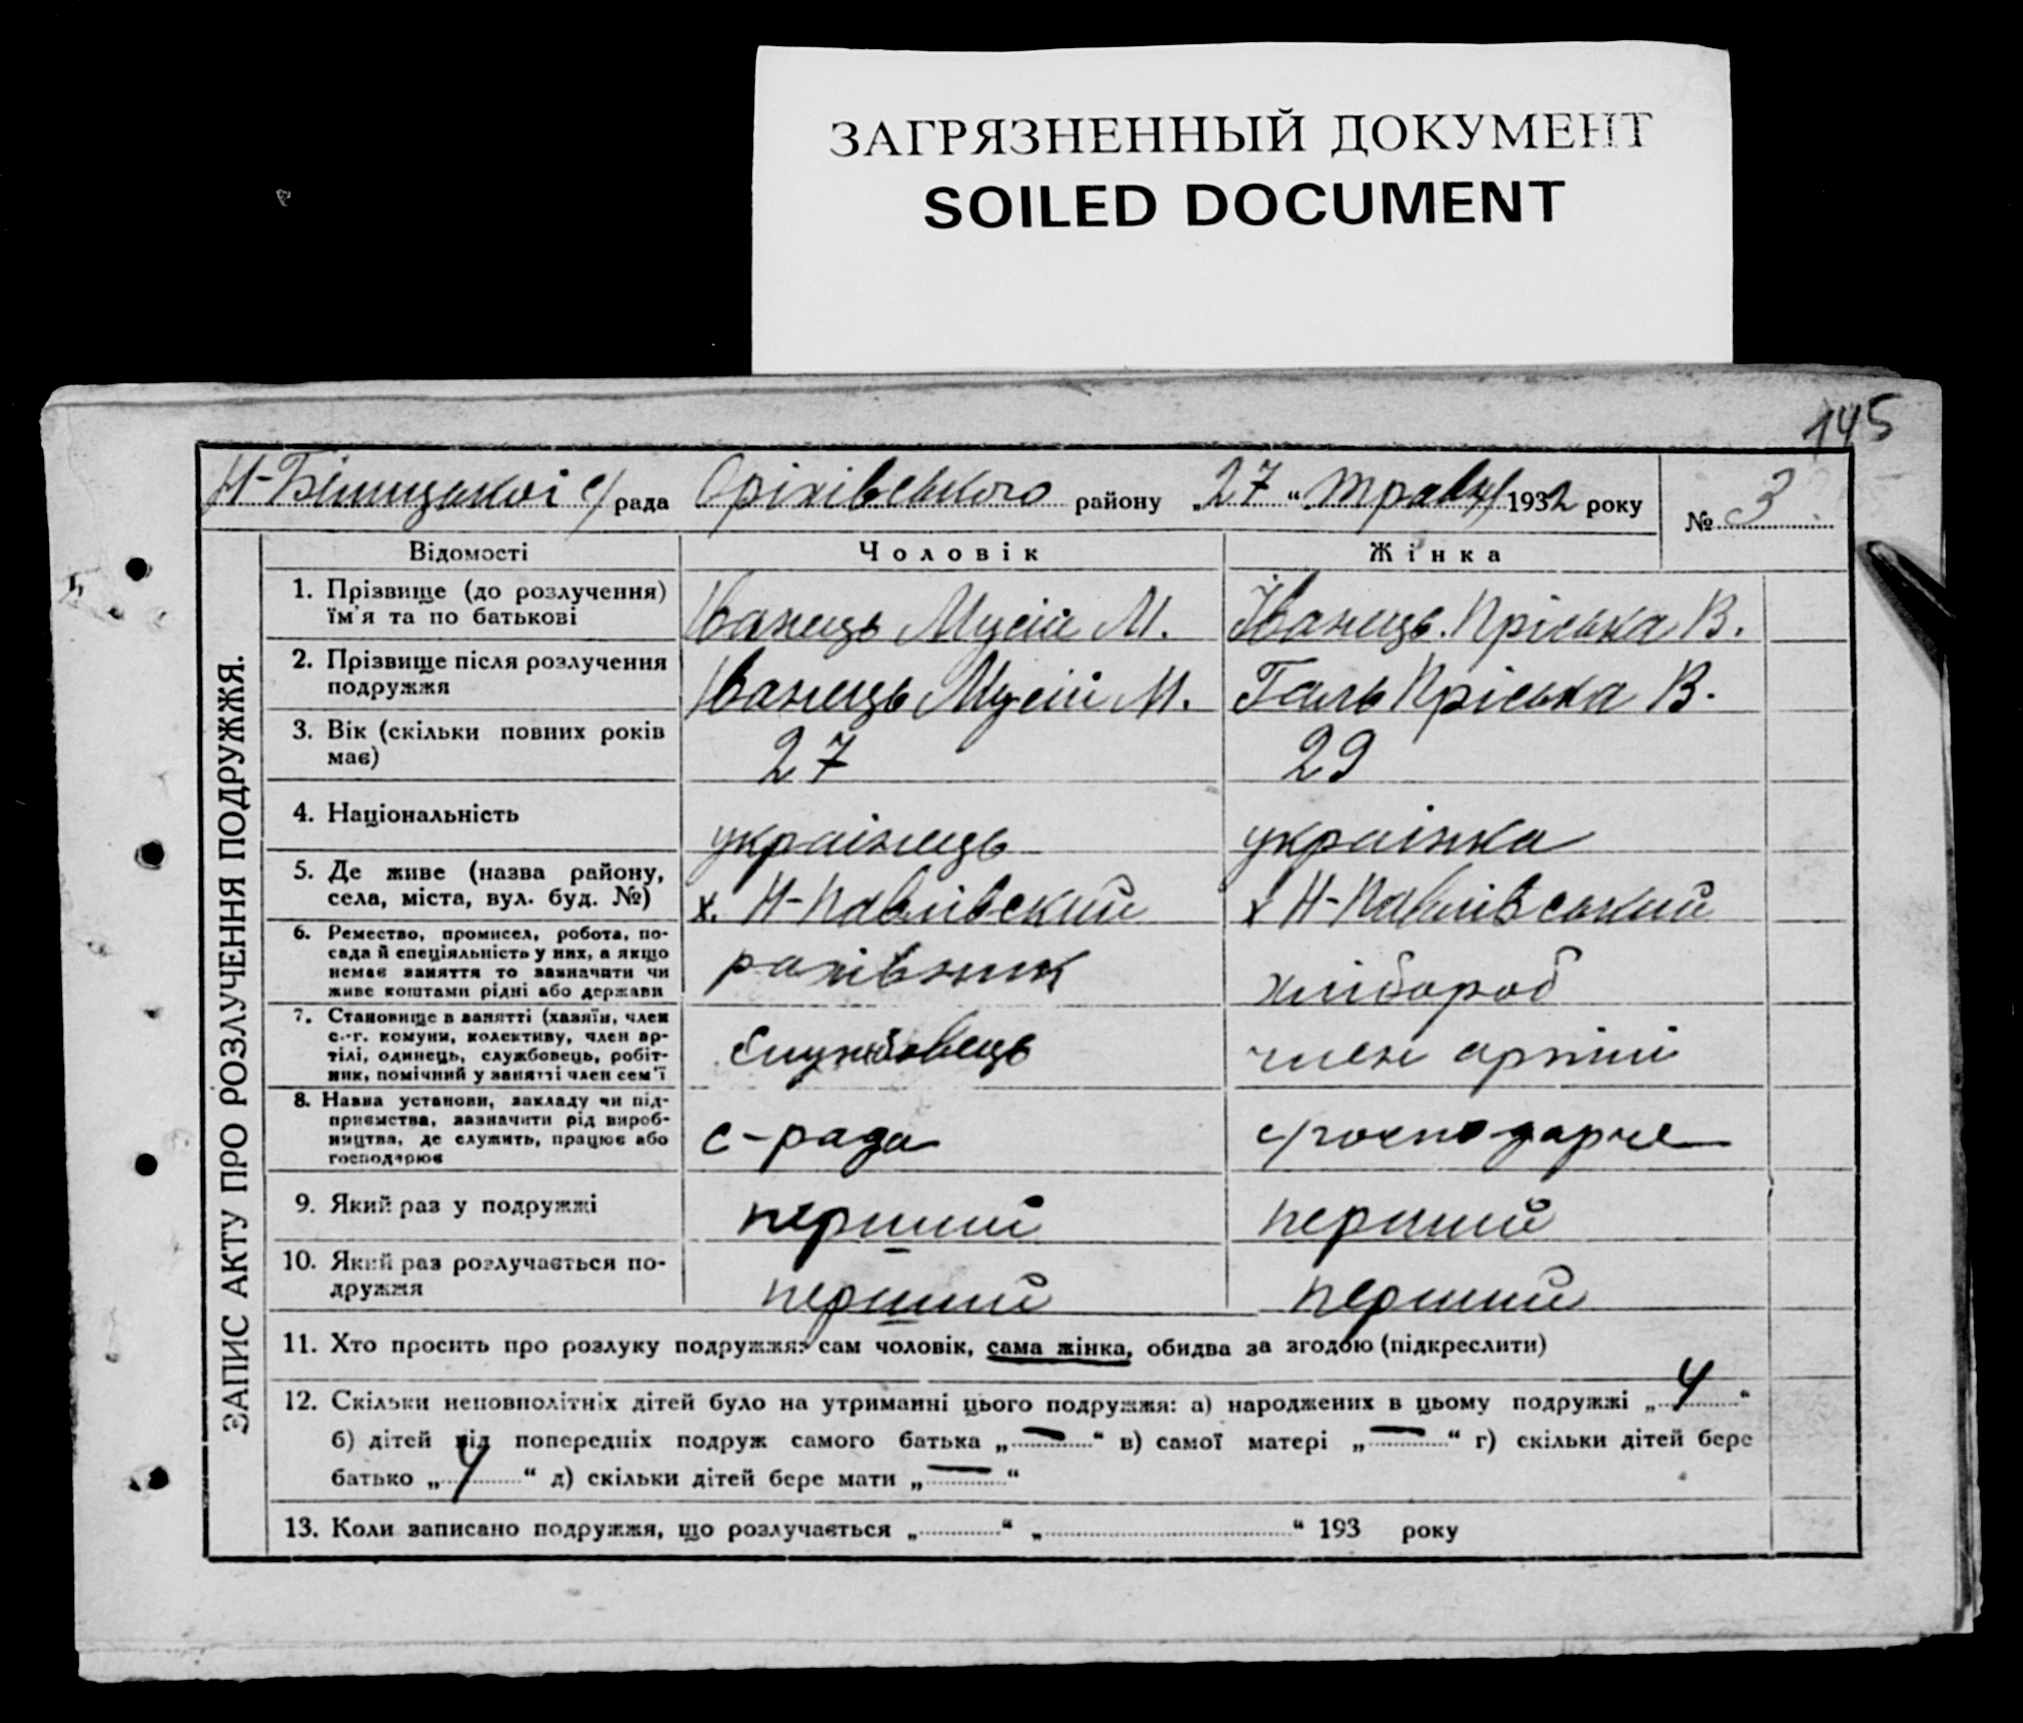 ЗАГРЯЗНЕННЫЙ ДОКУМЕНТ
SOILED DOCUMENT
145
с/рада Оріхівського району „27“ травня 1932 року
№ 3
ЗАПИС АКТУ ПРО РОЗЛУЧЕННЯ ПОДРУЖЖЯ.
Відомості Чоловік Жінка
1. Прізвище (до розлучення) їм'я та по батькові Іванець Мусій М. Іванець Пріська В.
2. Прізвище після розлучення подружжя Іванець Мусій М. Галь Пріська В.
3. Вік (скільки повних років має) 27 29
4. Національність українець українка
5. Де живе (назва району, села, міста, вул. буд. №) х. Н-Павлівский х Н-Павлівський
6. Ремество, промисел, робота, по-
сада й спеціяльність у них, а якщо
немає заняття то зазначити чи
живе коштами рідні або держави рахівник хлібороб
7. Становище в занятті (хазяїн, член
с.-г. комуни, колективу, член ар-
тілі, одинець, службовець, робіт-
ник, помічний у занятті член сем'ї службовець член артілі
8. Назва установи, закладу чи під-
приємства, зазначити рід вироб-
ництва, де служить, працює або
господарює с-рада с/господарче
9. Який раз у подружжі перший перший
10. Який раз розлучається по-
дружжя перший перший
11. Хто просить про розлуку подружжя: сам чоловік, сама жінка, обидва за згодою (підкреслити)
12. Скільки неповнолітніх дітей було на утриманні цього подружжя: а) народжених в цьому подружжі „4“
б) дітей від попередніх подруж самого батька „—“ в) самої матері „—“ г) скільки дітей бере
батько „4“ д) скільки дітей бере мати „—“
13. Коли записано подружжя, що розлучається „ “ „ “ 193 року